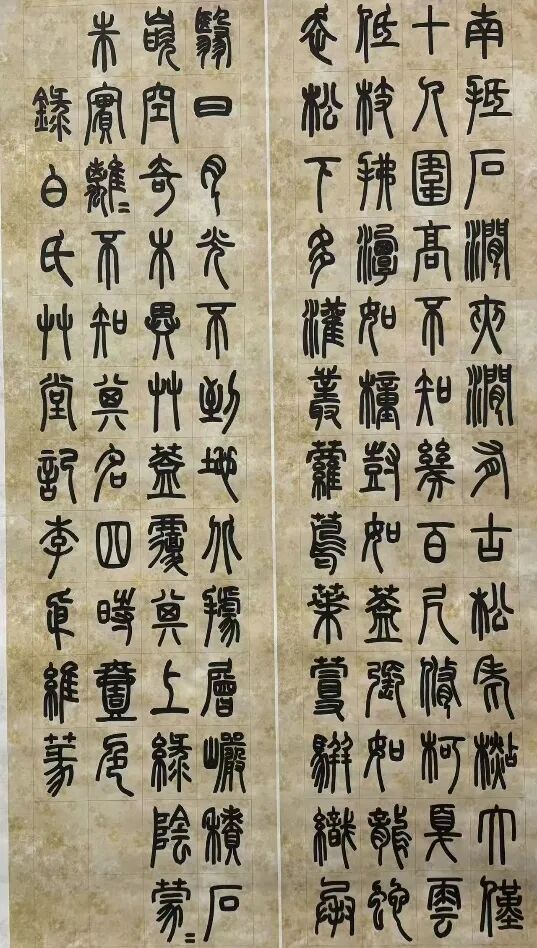 南抵石澗夾澗有古松老檆大僅
十人圍高不知幾百尺修柯戛雲
低枝拂潭如橦尌如蓋張如龍蛇
走松下多灌叢蘿蔦葉蔓駢織承
翳日月光不到地北據層巖積石
嵌空奇木異艸蓋覆其上綠陰蒙=
朱實離=不知其名四時壹色
錄白氏艸堂記李維篆